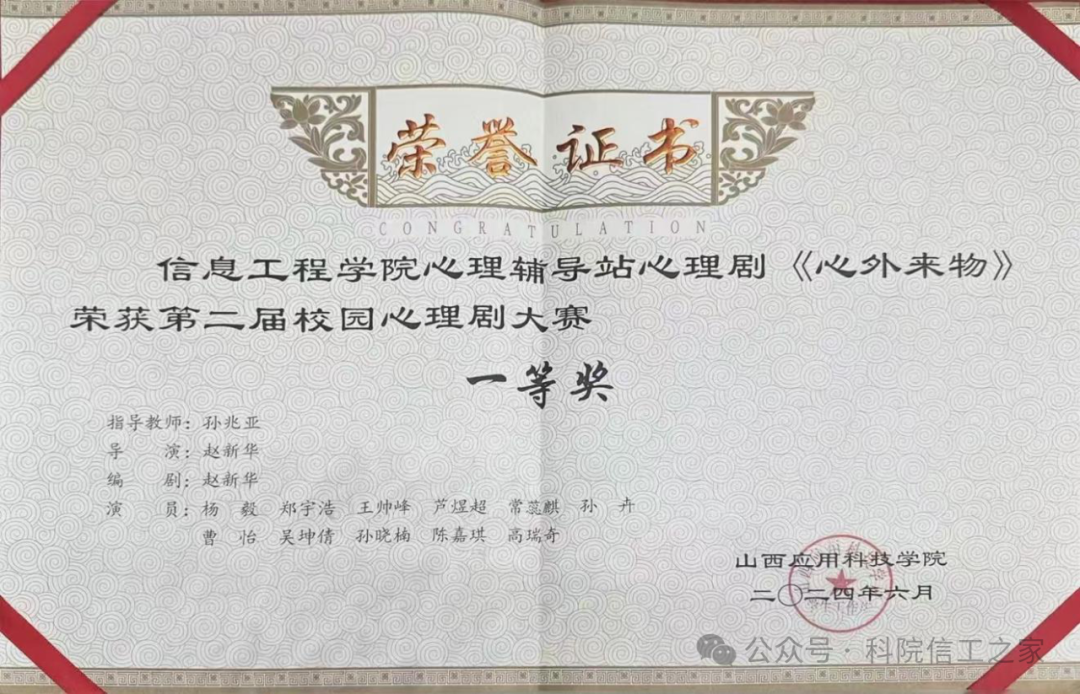 荣誉证书
CONGRATULATION
信息工程学院心理辅导站心理剧《心外来物》
荣获第二届校园心理剧大赛
一等奖
指导教师：孙兆亚
导 演：赵新华
编 剧：赵新华
演 员：杨 毅 郑宇浩 王帅峰 芦煜超 常蕊麒 孙 卉
曹 怡 吴坤倩 孙晓楠 陈嘉琪 高瑞奇
山西应用科技学院
二〇二四年六月
公众号·科院信工之家